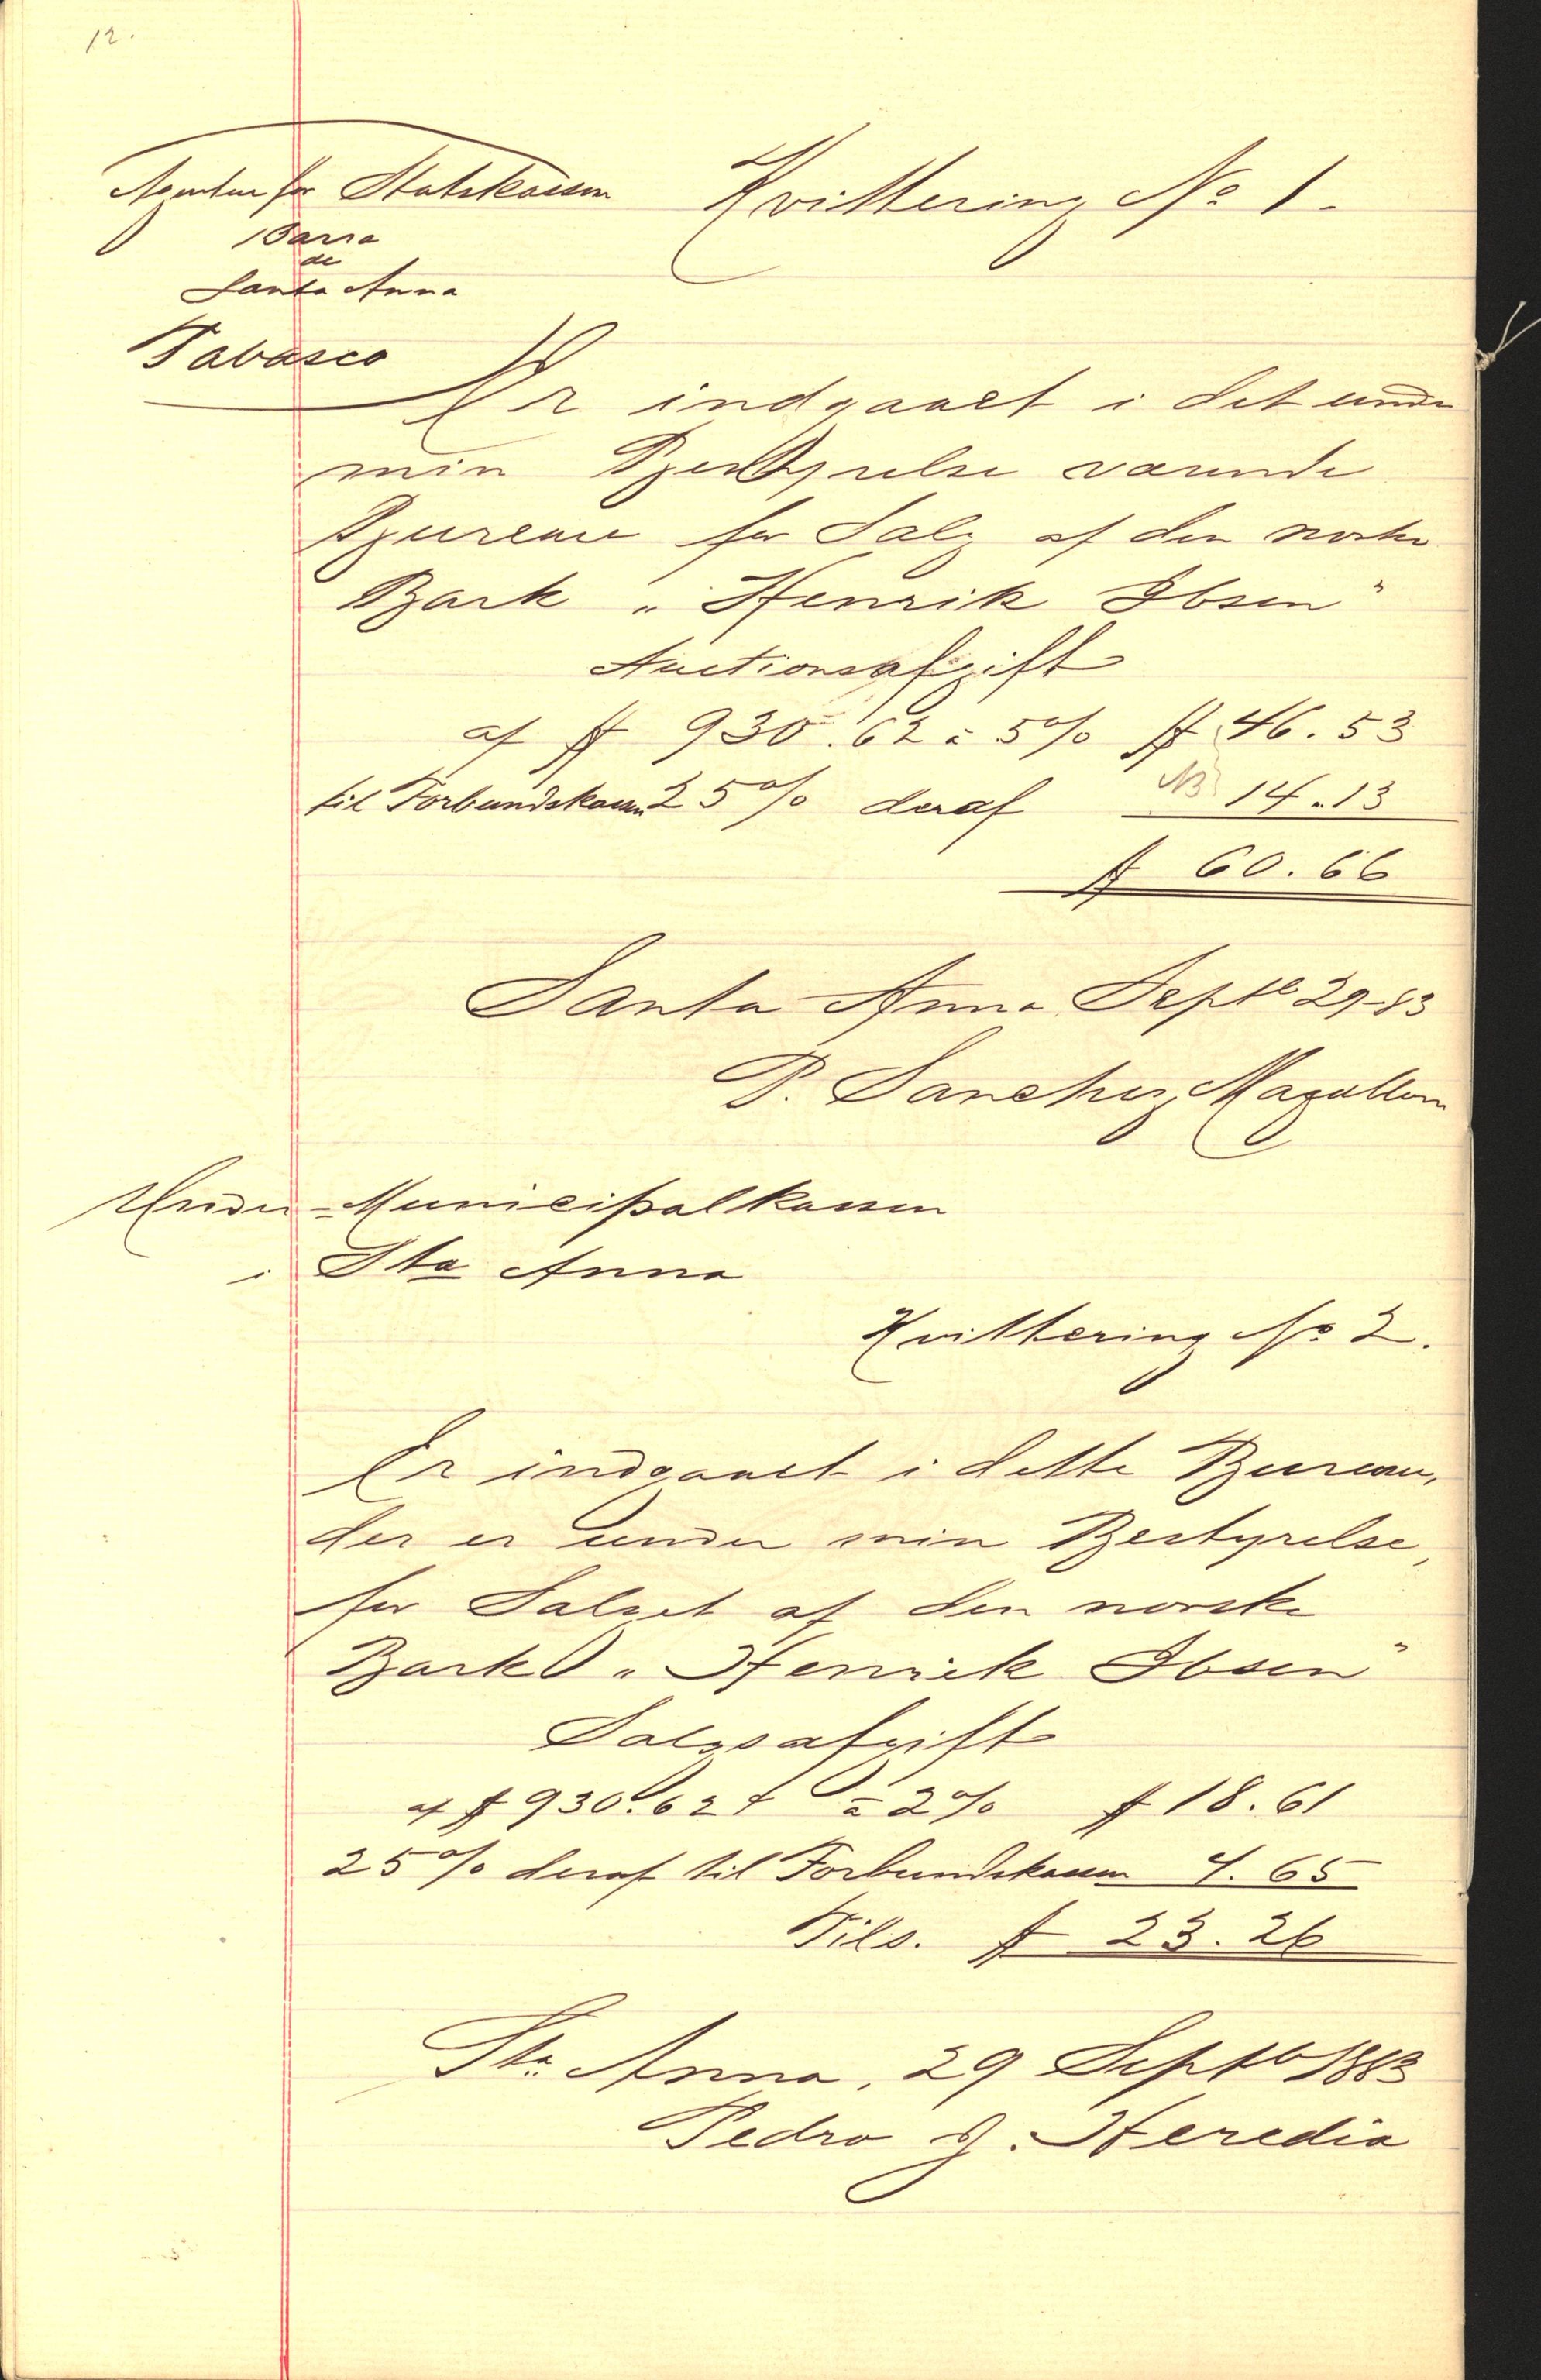 12.
Agentur for Statskassen
Barra
de
Santa Anna
Tabasco
Kvittering No 1.
Er indgaaet i det under
min Bestyrelse værende
Bureau for Salg af den norske
Bark „Henrik Ibsen"
Auctionsafgift
af $ 930.62 à 5% $ 46.53
til Forbundskassen 25% deraf NB 14.13
$ 60.66
Santa Anna Septb 29-83
P. Sanchez Magallon
Under-Municipalkassen
i Sta Anna
Kvittering No 2.
Er indgaaet i dette Bureau,
der er under min Bestyrelse,
for Salget af den norske
Bark „Henrik Ibsen"
Salgsafgift
af $ 930.62 à 2% $ 18.61
25% deraf til Forbundskassen 4.65
Tils. $ 23.26
Sta Anna, 29 Septb 1883
Pedro J. Heredia